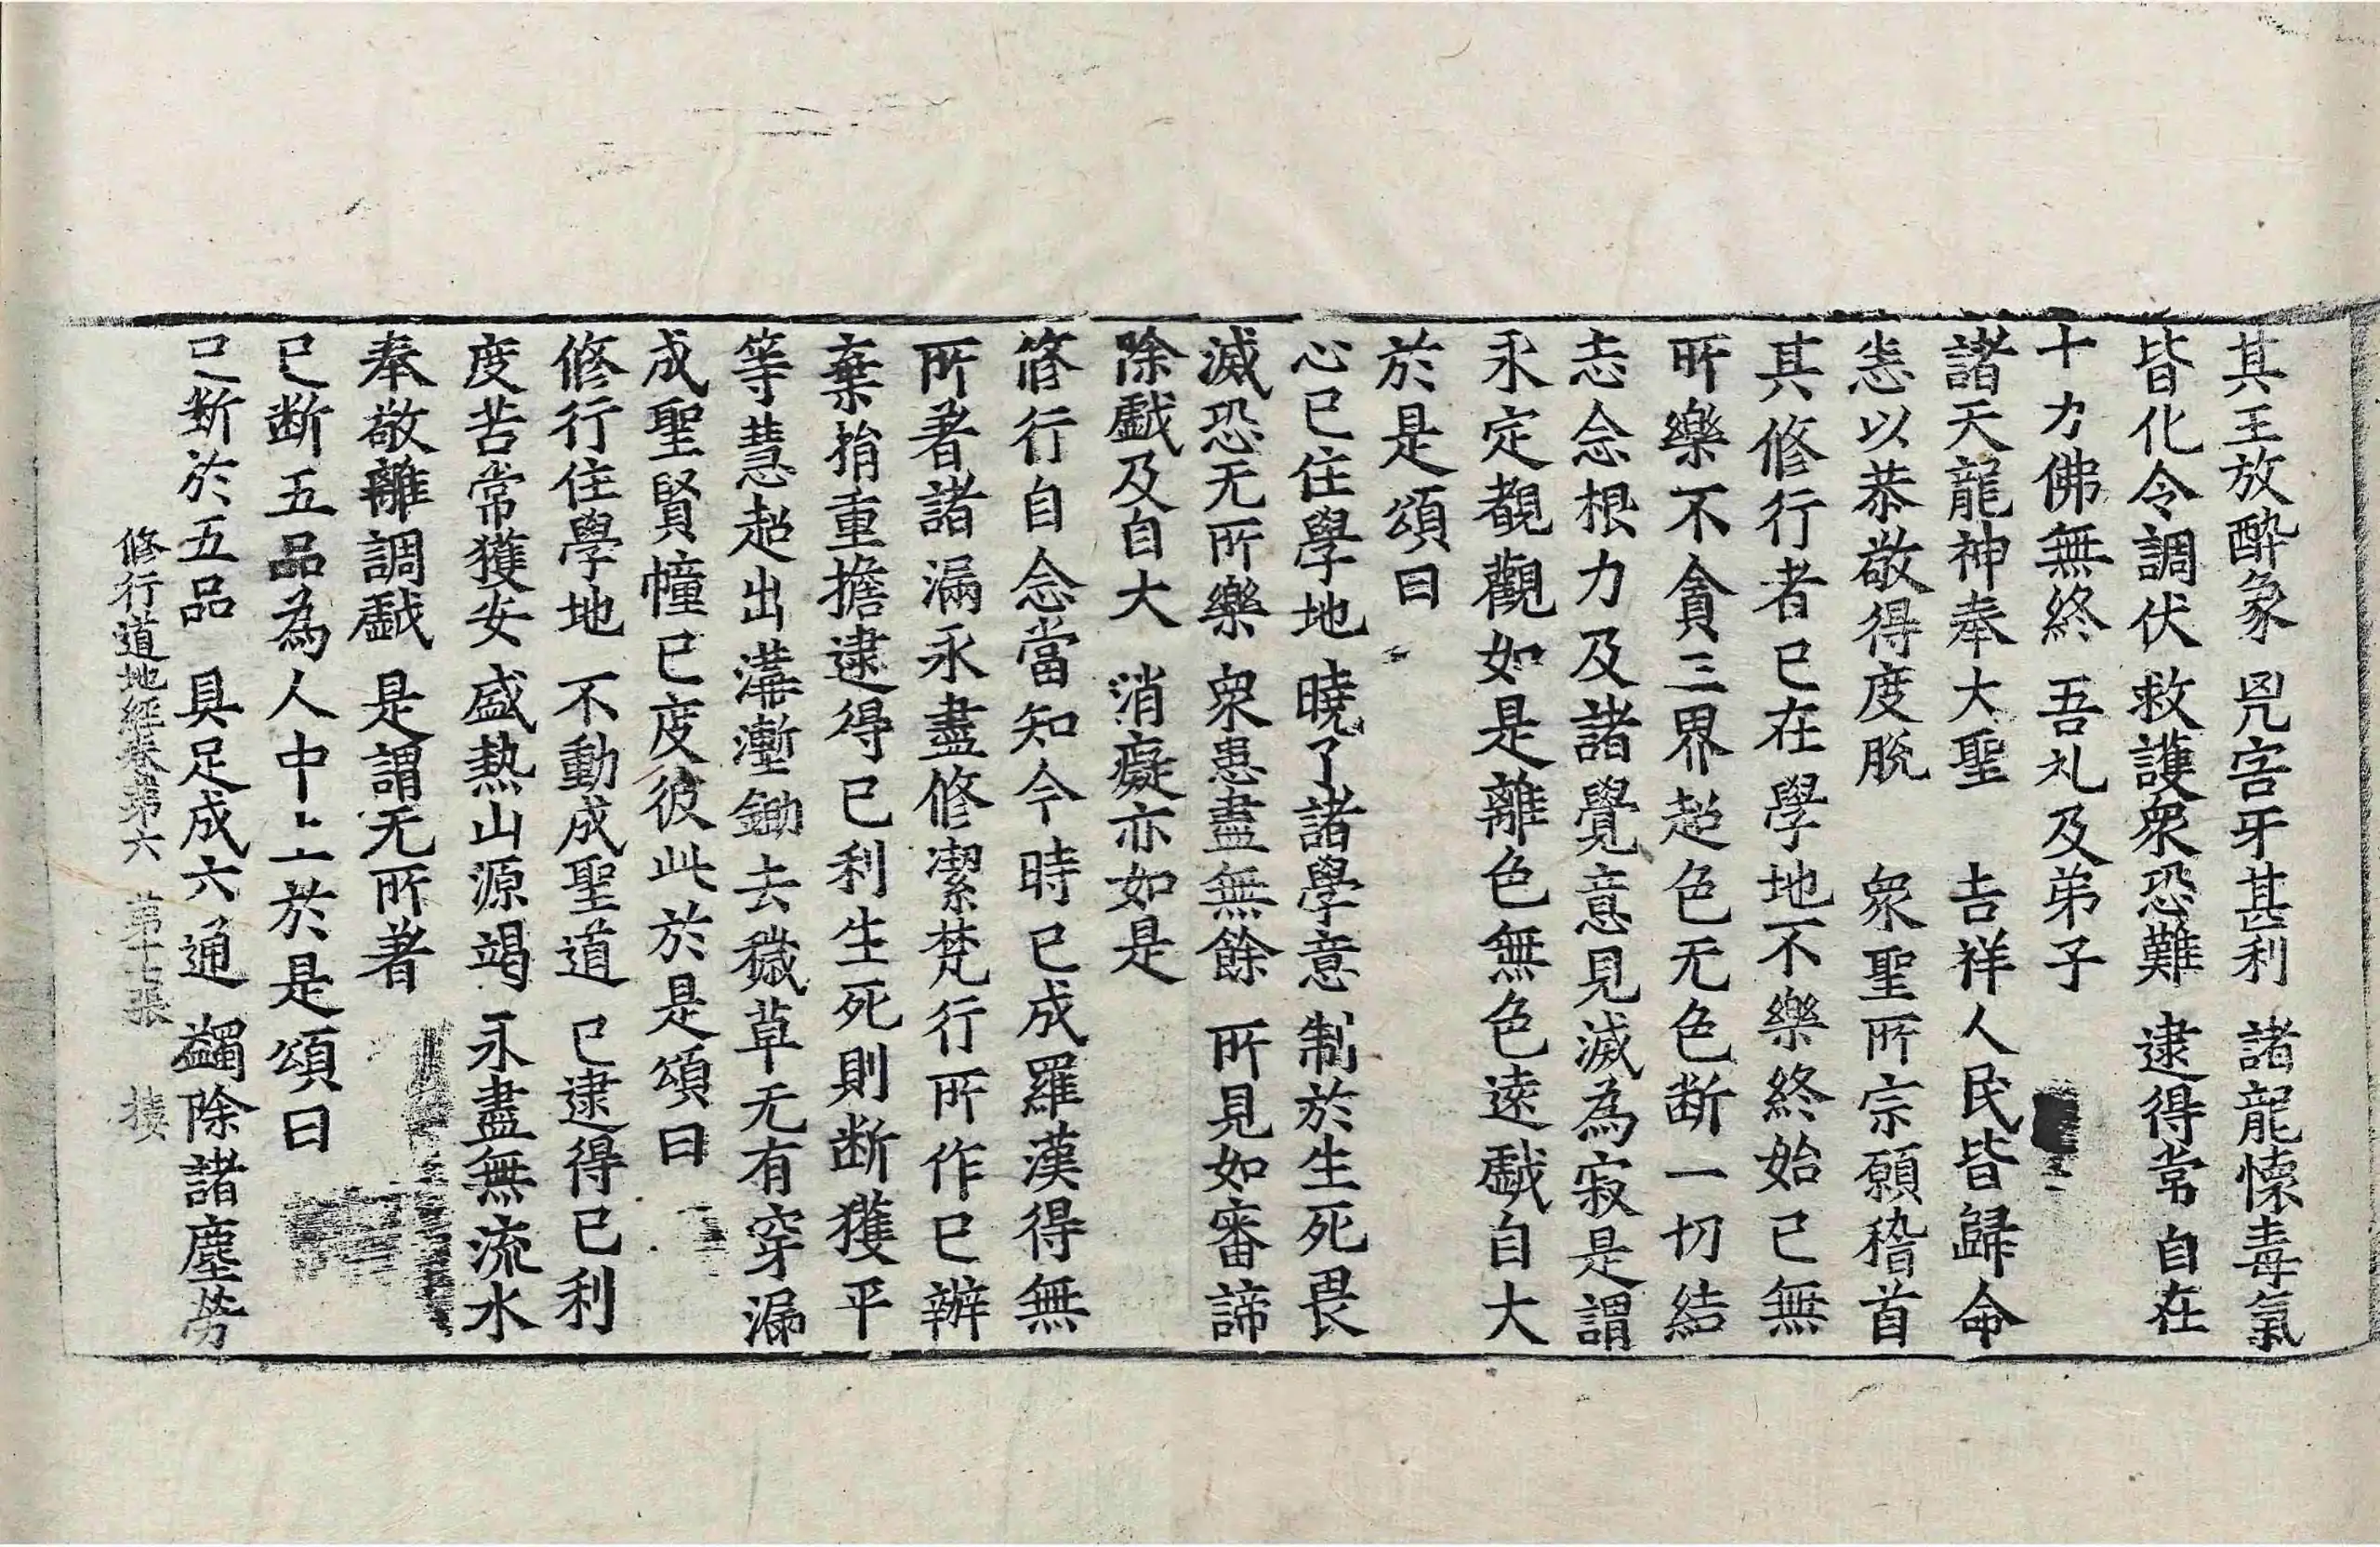 其王放醉象　兕害牙甚利　諸龍懷毒氣
皆化令調伏　救護衆恐難　逮得常自在
十力佛無終　吾礼及弟子
諸天龍神奉大聖　吉祥人民皆歸命
恙以恭敬得度脫　衆聖所宗願稽首
其修行者已在學地不樂終始已無
所樂不貪三界超色无色断一切結
志念根力及諸覺意見滅為寂是謂
永定覩觀如是離色無色遠戱自大
於是頌曰
心已住學地　曉了諸學意　制於生死畏
滅恐无所樂　衆患盡無餘　所見如審諦
除戱及自大　消癡亦如是
修行自念當知今時已成羅漢得無
所著諸漏永盡修潔梵行所作已辦
棄捐重擔逮得已利生死則断獲平
等慧超出溝塹鋤去穢草无有穿漏
成聖賢幢已度彼此於是頌曰
修行住學地　不動成聖道　已逮得已利
度苦常獲安　盛熱山源竭　永盡無流水
奉敬離調戱　是謂无所著
已断五品為人中上於是頌曰
已断於五品　具足成六通　蠲除諸塵勞
修行道地經卷第六　第十張